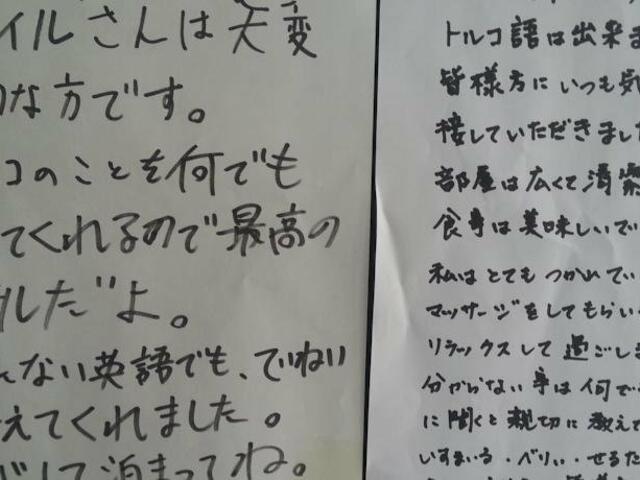 イルさんは大変
な方です。
コのことを何でも
てくれるので最高の
ルだよ。
ない英語でも、ていねい
えてくれました。
して泊まってね。
トルコ語は出来ま
皆様方にいつも気
接していただきました
部屋は広くて清潔
食事は美味しいで
私はとてもつかれてい
マッサージをしてもらい
リラックスして過ごしま
分からない事は何で
に聞くと親切に教えて
いすまいる・べりぃ・せるた